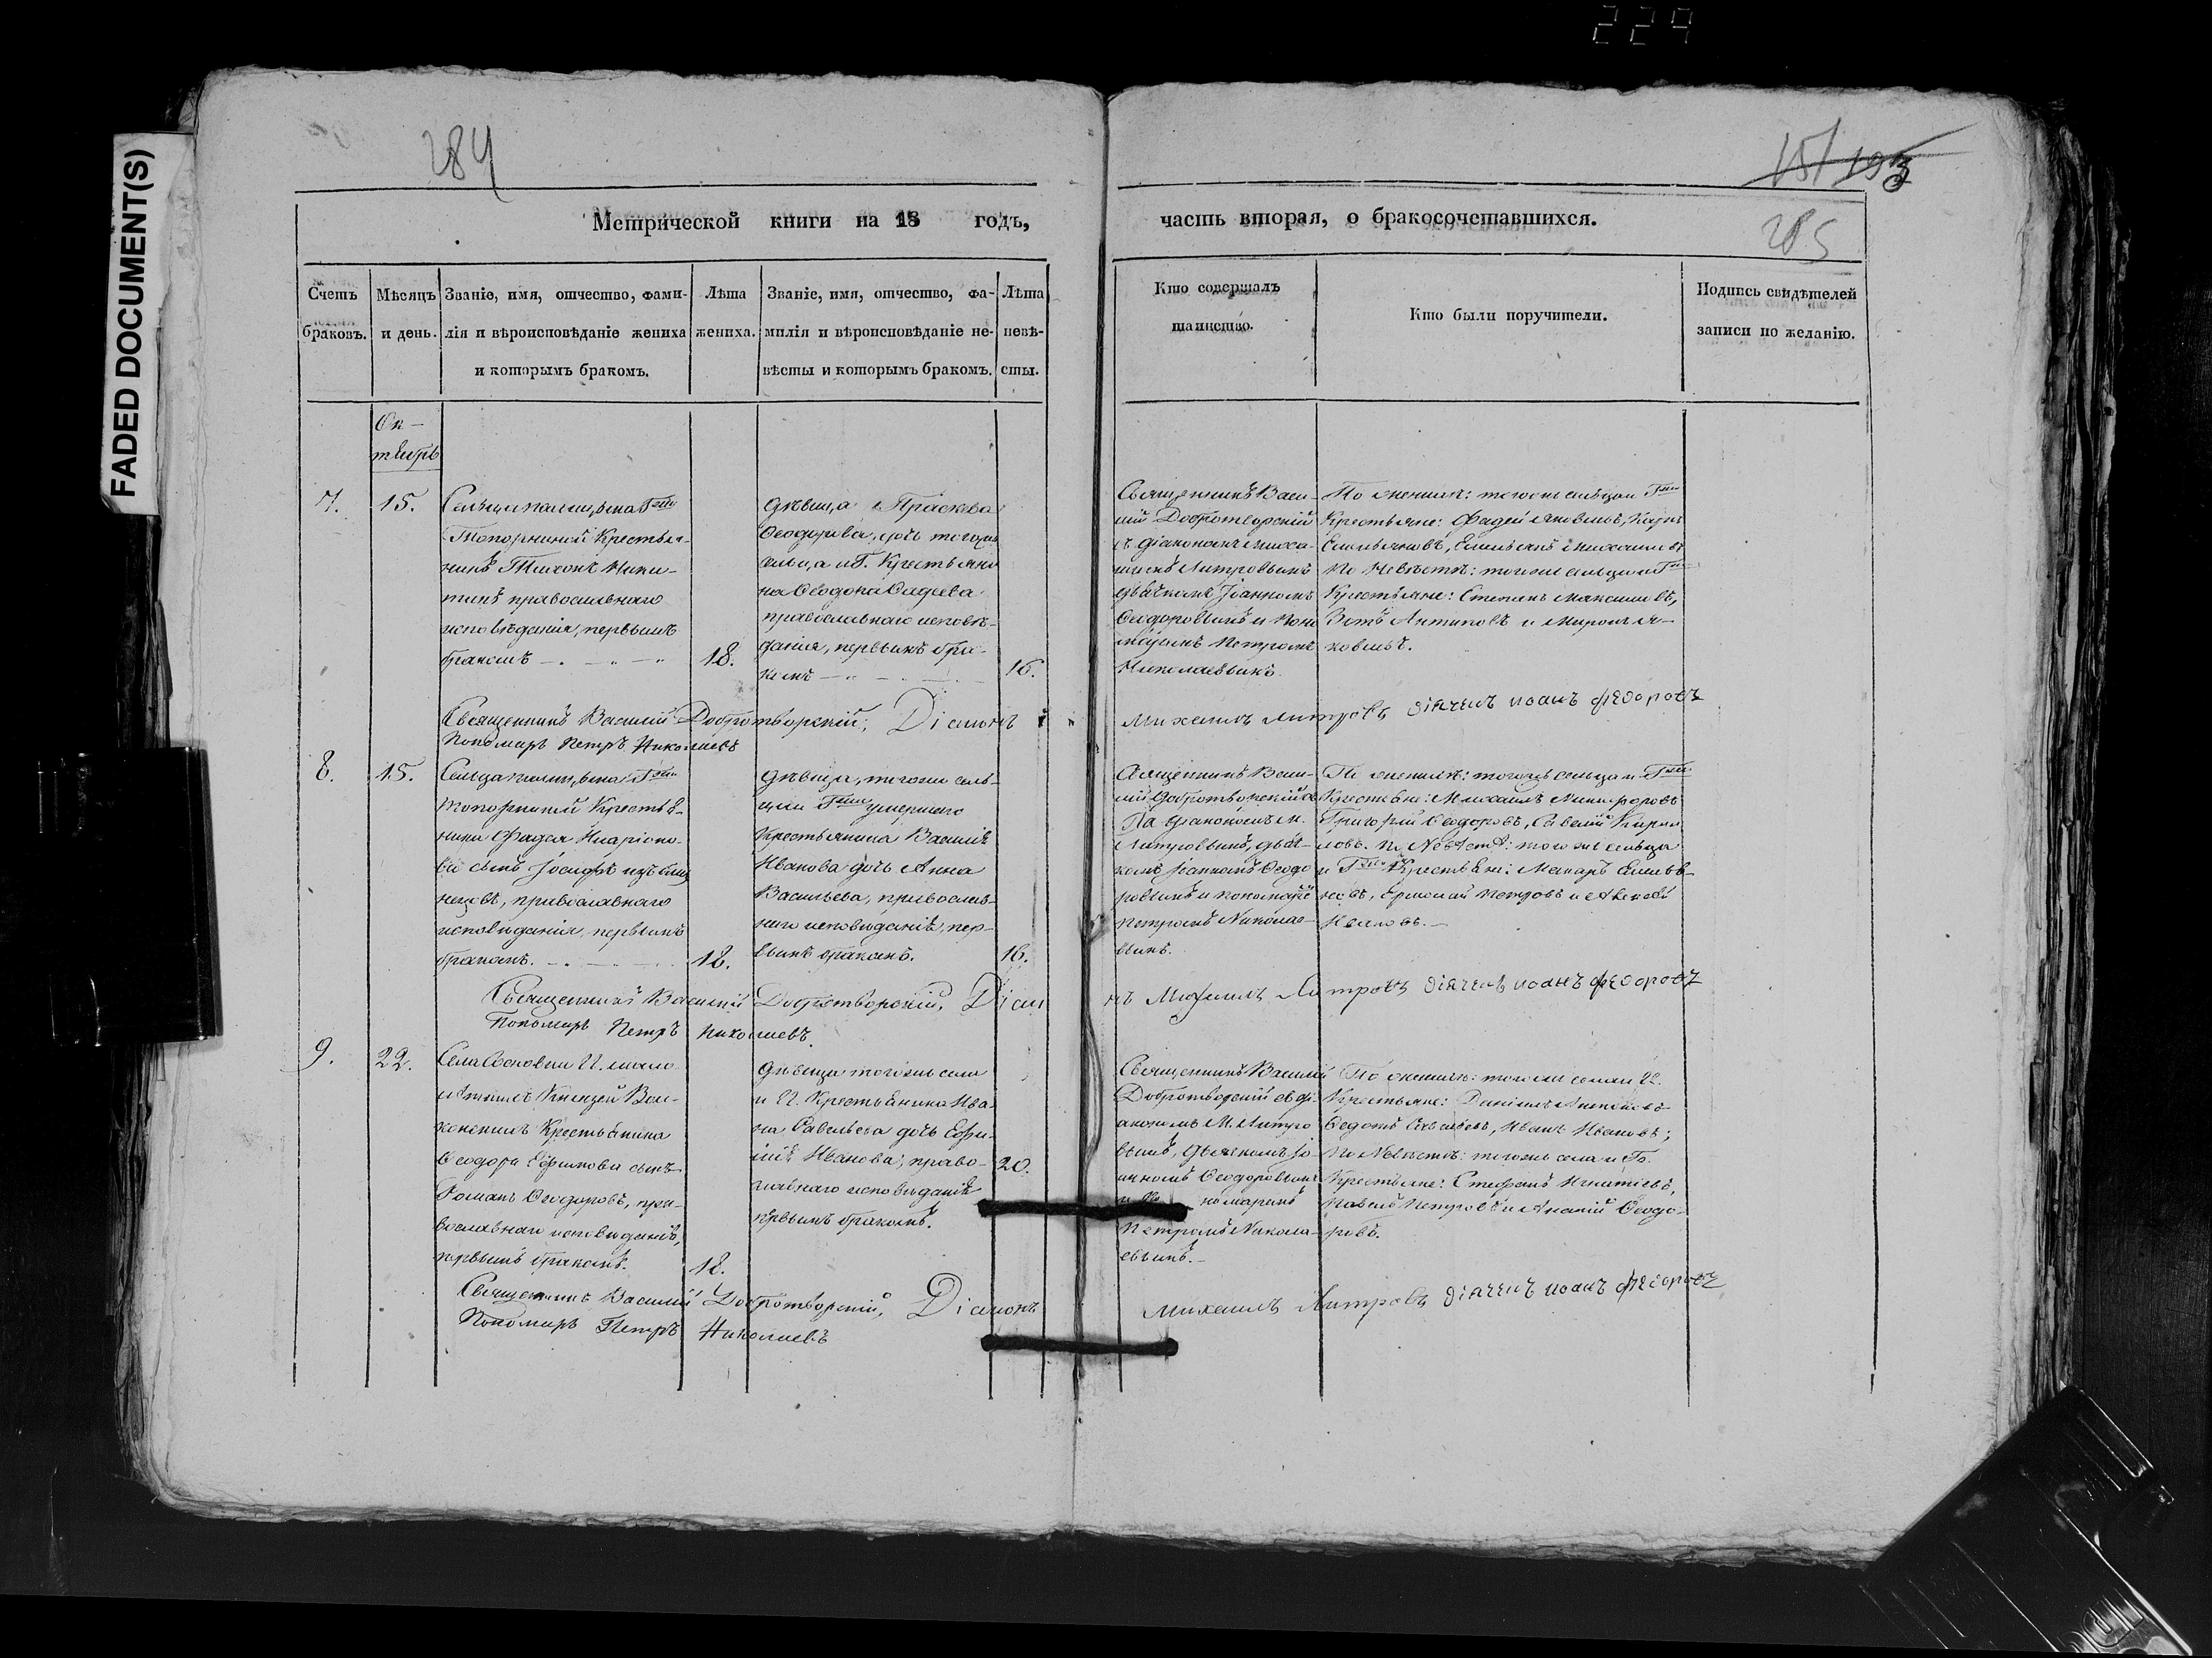 224
FADED DOCUMENT(S)
284
151 193
285
Метрической книги на 18 годъ,
часть вторая, о бракосочетавшихся.
Счетъ браковъ.
Мѣсяцъ и день.
Званіе, имя, отчество, фами-
лія и вѣроисповѣданіе жениха
и которымъ бракомъ.
Лѣта
жениха.
Званіе, имя, отчество, фа-
милія и вѣроисповѣданіе не-
вѣсты и которымъ бракомъ.
Лѣта
невѣ-
сты.
Кто совершалъ
таинство.
Кто были поручители.
Подпись свидѣтелей
записи по желанію.
Ок-
тябрь
7.
15.
Крестья-
нинъ Тихонъ Ники-
тинъ православнаго
исповѣданія, первымъ
бракомъ
18.
Дѣвица Праскева
Ѳеодорова, дочь тогожъ
сельца и Г. Крестьяни
на Ѳеодора
православнаго исповѣ-
данія, первымъ бра-
комъ
16.
Священникъ Васи-
лій Добротворскій
съ діакономъ Миха-
иломъ Литровымъ
дьячкомъ Іоанномъ
Ѳеодоровымъ и поно
маремъ Петромъ
Николаевымъ
По женихѣ: тогоже сельца и Гжи
Крестьяне: Фадей Яковлевъ,
Емельяновъ, Емельянъ Михаиловъ
По Невѣстѣ: тогоже сельца и Гжи
Крестьяне: Степанъ Максимовъ,
Антиповъ и Миронъ Я-
ковлевъ.
Священникъ Василій Добротворскій, Діаконъ
Михаилъ Литровъ діячекъ иоанъ федоровъ
Пономарь Петръ Николаевъ
8.
15.
Крестья-
нина Фадея Иларіоно-
ва сынъ Іосифъ изъ близ
нецовъ, православнаго
исповѣданія, первымъ
бракомъ.
18.
Дѣвица, тогоже сель-
ца и Гжи умершаго
Крестьянина Василія
Иванова дочь Анна
Васильева, православ-
наго исповѣданія, пер-
вымъ бракомъ.
16.
Священникъ Васи-
лій Добротворскій съ
діакономъ М.
Литровымъ, дьяч-
комъ Іоанномъ Ѳеодо
ровымъ и пономаремъ
Петромъ Николае-
вымъ.
По женихѣ: тогожъ сельца и Гжи
Крестьяне: Михаилъ Никифоровъ
Григорій Ѳеодоровъ, Савелій Кирил
ловъ. По Невѣстѣ: тогоже сельца
и Гжи Крестьяне: Макаръ Емелья-
новъ, Ермолай Петровъ и Алексѣй
Ивановъ.
Священникъ Василій Добротворскій, Діако
нъ Михаилъ Литровъ діячекъ иоанъ федоровъ
Пономарь Петръ Николаевъ.
9.
22.
Села Сосновки Г. мало
лѣтнихъ Князей Вол-
конскихъ Крестьянина
Ѳеодора Ефимова сынъ
Романъ Ѳеодоровъ, пра-
вославнаго исповѣданія,
первымъ бракомъ.
18.
Дѣвица тогожъ села
и Г. Крестьянина Ива-
на Савельева дочь Ефи-
мія Иванова, право-
славнаго исповѣданія
первымъ бракомъ.
20.
Священникъ Василій
Добротворскій съ ді-
акономъ М. Литро
вымъ, дьячкомъ Іо-
анномъ Ѳеодоровымъ
и пономаремъ
Петромъ Никола-
евымъ.
По женихѣ: тогоже села и Г.
Крестьяне: Даніилъ
Ѳедотъ Савельевъ, Иванъ Ивановъ;
По Невѣстѣ: тогожъ села и Г.
Крестьяне: Стефанъ Игнатіевъ,
Павелъ Петровъ и Ананій Ѳеодо-
ровъ.
Священникъ Василій Добротворскій, Діаконъ
Михаилъ Литровъ діячекъ иоанъ федоровъ
Пономарь Петръ Николаевъ